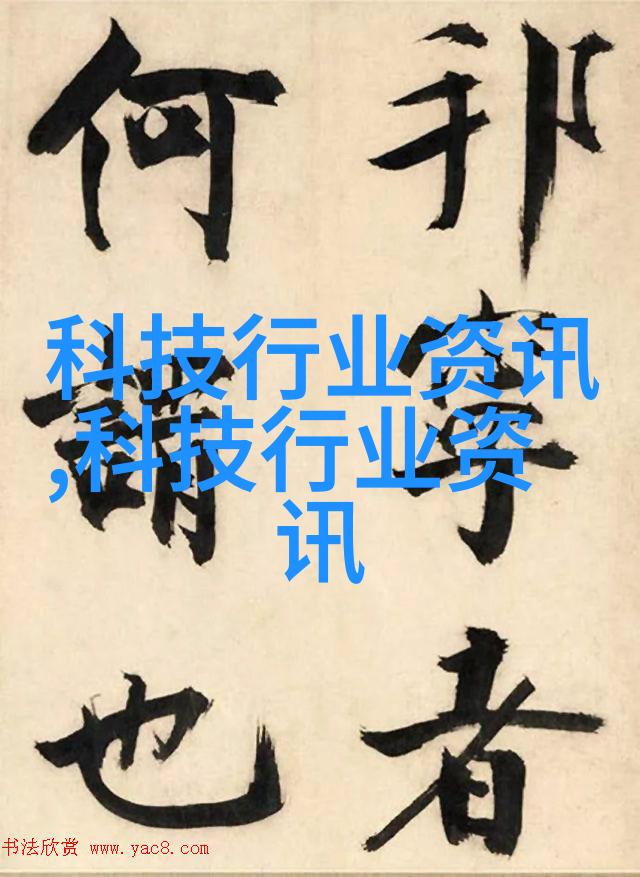 邦寧者
何謂也
科技行业资讯
,科技行业资
讯
书法欣赏 www.yac8.com